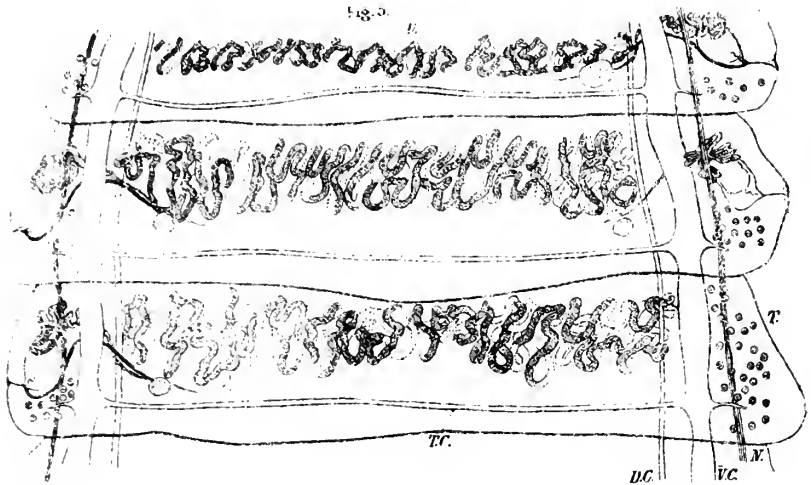 Fig. 5.
T.
T.C.
N.
D.C. V.C.